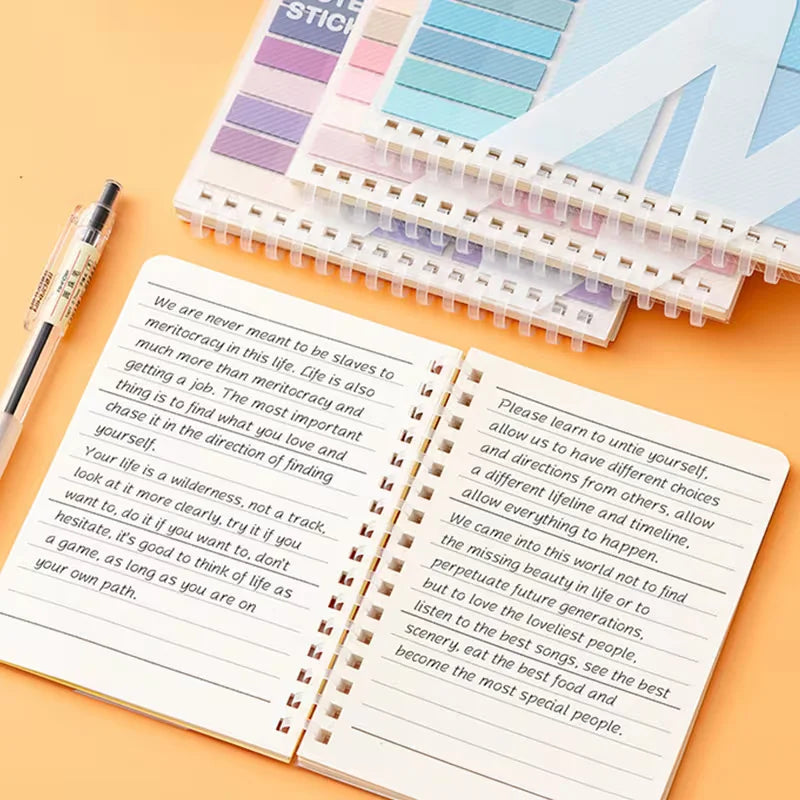 STICK
We are never meant to be slaves to
meritocracy in this life. Life is also
much more than meritocracy and
getting a job. The most important
thing is to find what you love and
chase it in the direction of finding
yourself.
Your life is a wilderness, not a track,
look at it more clearly, try it if you
want to, do it if you want to, don't
hesitate, it's good to think of life as
a game, as long as you are on
your own path.
Please learn to untie yourself,
allow us to have different choices
and directions from others, allow
a different lifeline and timeline,
allow everything to happen.
We came into this world not to find
the missing beauty in life or to
perpetuate future generations,
but to love the loveliest people,
listen to the best songs, see the best
scenery, eat the best food and
become the most special people.